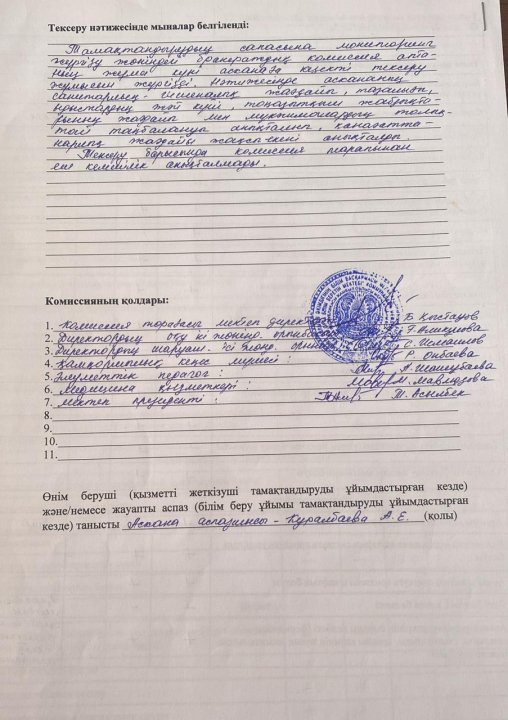 Тексеру нәтижесінде мыналар белгіленді:
Тамақтандырудың сапасына мониторинг
жүргізу жөніндегі бракераждық комиссия апта-
ның жұма күні асханада кезекті тексеру
жұмысын жүргізді. Нәтижесінде асхананың
санитарлық - гигеналық жағдайы, тазалығы,
ыдыстардың жай күйі, тоңазытқыш жабдықта-
рының жағдайы мен
тай таңбалануы анықталып, қанағатта-
нарлық жағдайы жақсы екені анықталды
Тексеру барысында комиссия тарапынан
еш кемшілік анықталмады.
Комиссияның қолдары:
1. Комиссия төрағасы мектеп директоры Б Қыстаубаев
2. Директордың оқу ісі жөнінд. орынбасары
3. Директордың шаруаш. ісі жөнд. орынбасары С. Исмаилов
4. Қамқоршылық кеңес мүшесі: Р. Онбаева
5. Әлуметтік педагог:
6. Медицина қызметкері: М. Мавлюзова
7. мектеп президенті: Т. Асылбек
8.
9.
10.
11.
Өнім беруші (қызметті жеткізуші тамақтандыруды ұйымдастырған кезде)
және/немесе жауапты аспаз (білім беру ұйымы тамақтандыруды ұйымдастырған
кезде) танысты Асхана аспазшысы - Куралбаева А.Е. (қолы)